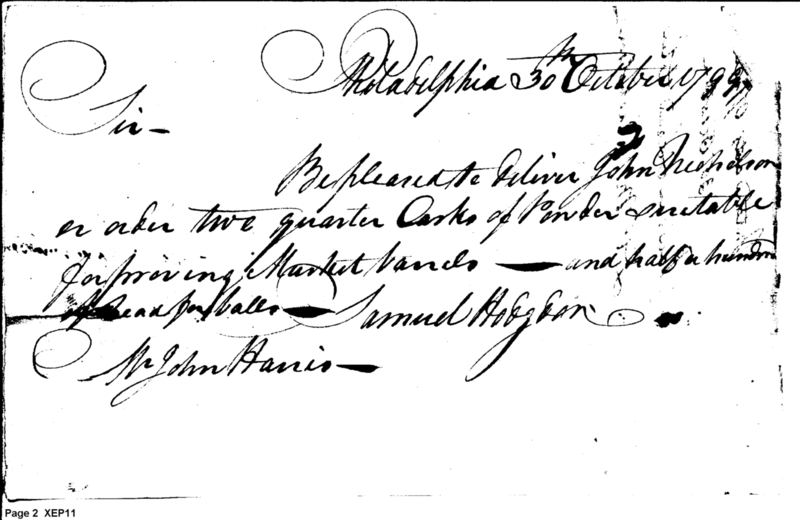 Philadelphia 30th October 1799
Sir –
Be pleased to deliver John Nicholson
or order two quarter Casks of Powder suitable
for proving Musket barrels — and half a hundred
of Lead for balls — Samuel Hodgdon
Mr John Harris —
Page 2 XEP11